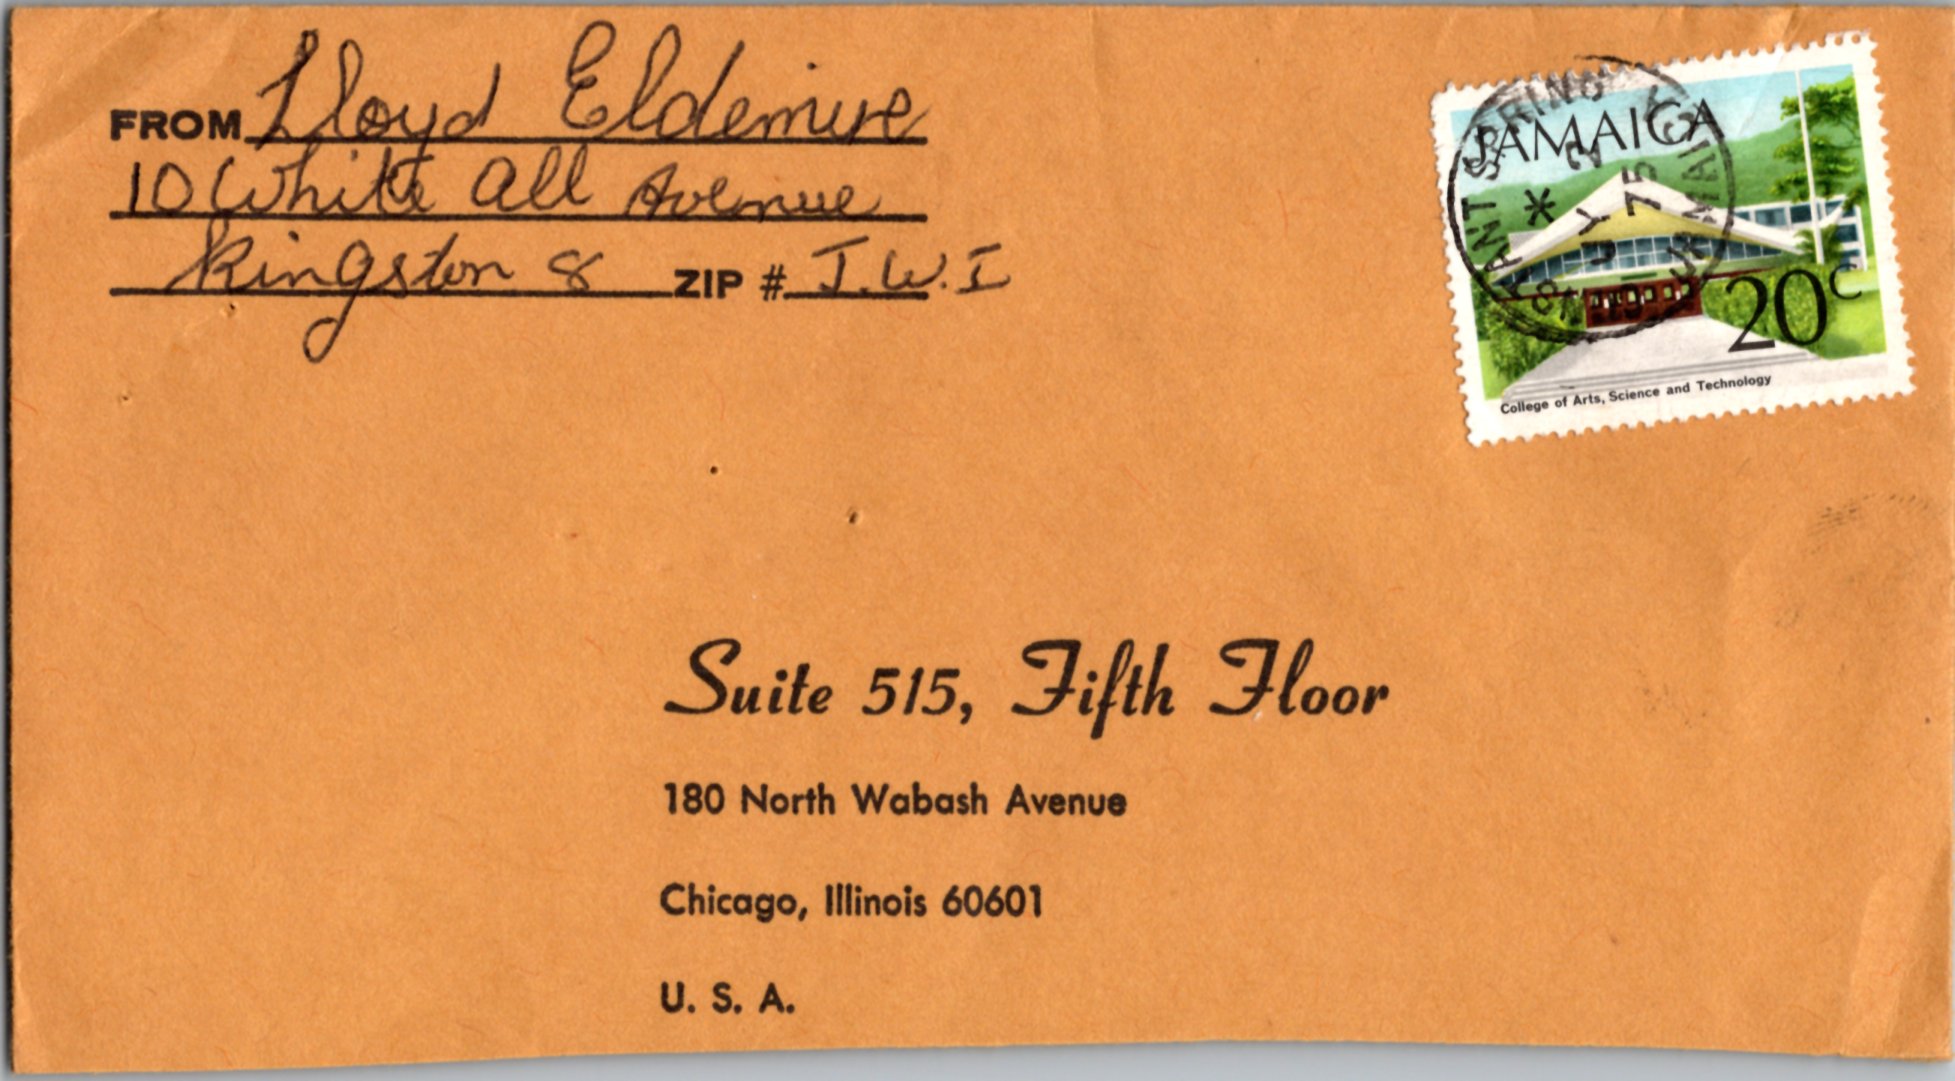 FROM Lloyd Eldemire
10 White All Avenue
Kingston 8 ZIP # J.W.I
JAMAICA
20c
College of Arts, Science and Technology
ANT SPRING
*
JY
75
JAMAICA
Suite 515, Fifth Floor
180 North Wabash Avenue
Chicago, Illinois 60601
U. S. A.